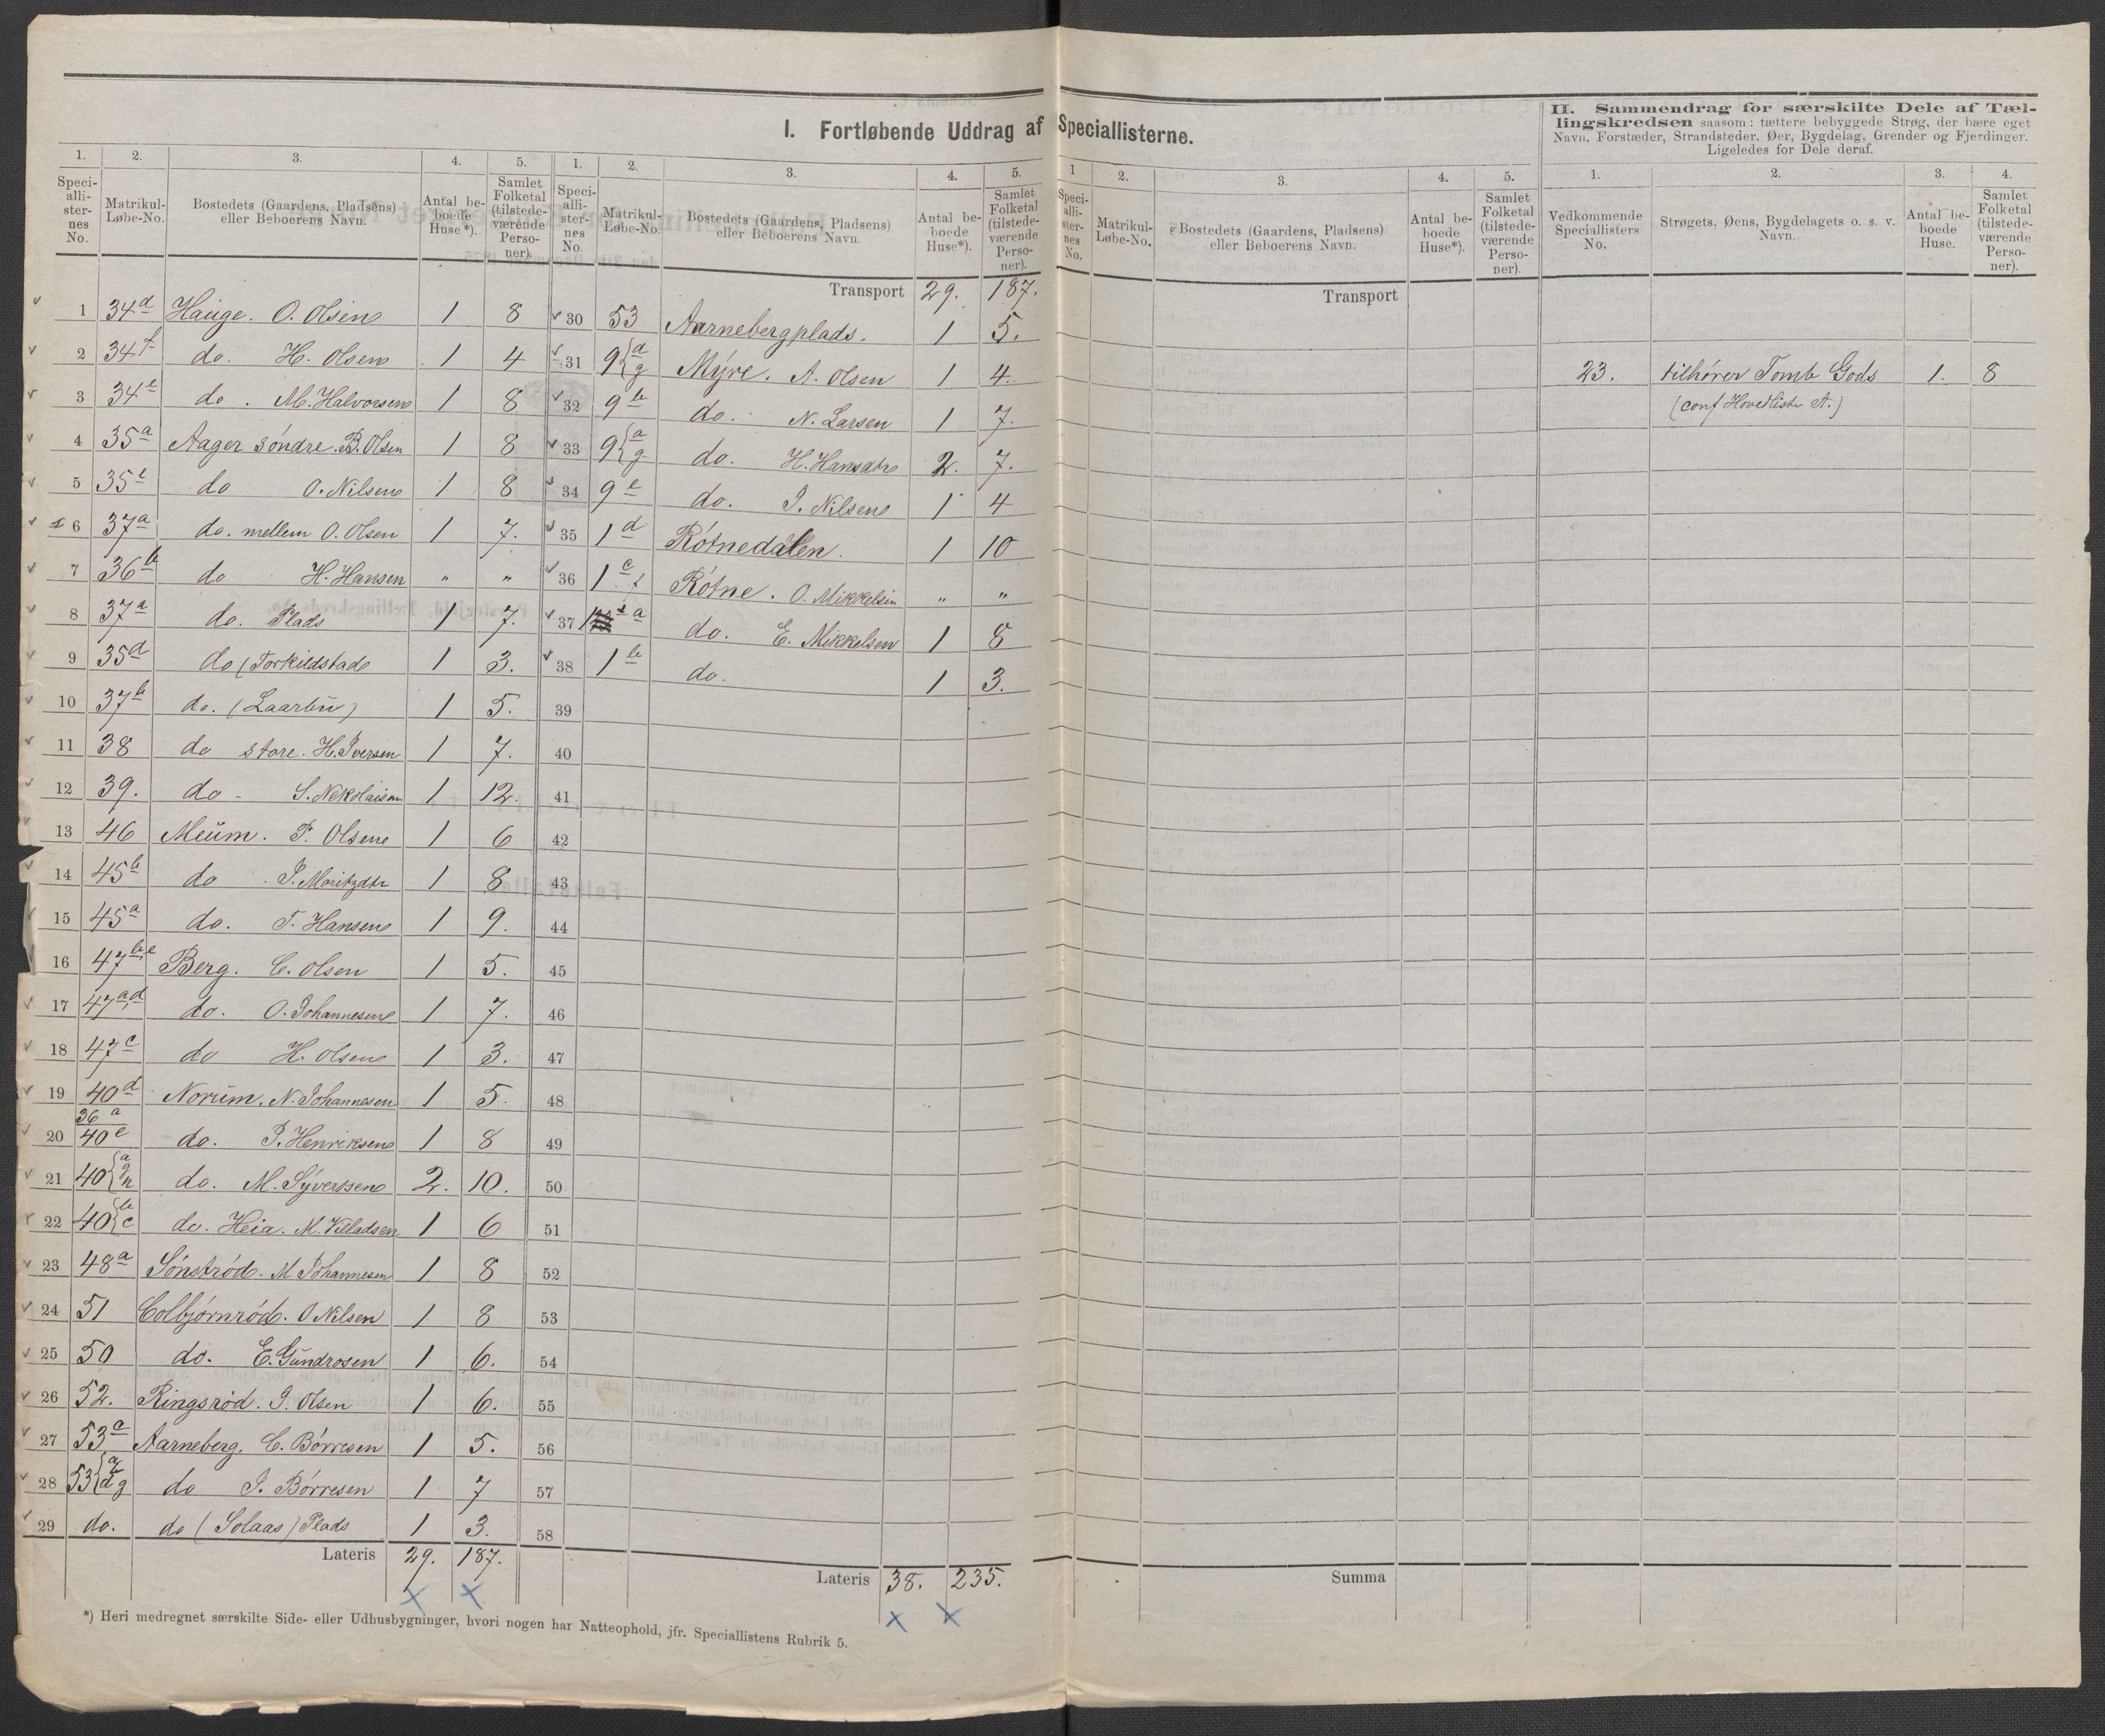 I. Fortløbende Uddrag af Speciallisterne.
II. Sammendrag for særskilte Dele af Tæl-
lingskredsen saasom: tættere bebyggede Strøg, der bære eget
Navn, Forstæder, Strandsteder, Øer, Bygdelag, Grender og Fjerdinger.
Ligeledes for Dele deraf.
1. 2. 3. 4. 5.
Speci-alli-ster-nes No. Matrikul-Løbe-No. Bostedets (Gaardens, Pladsens) eller Beboerens Navn. Antal be-boede Huse*). Samlet Folketal (tilstede-værende Perso-ner).
1 34d Hauge. O. Olsen 1 8
2 34f do. H. Olsen 1 4
3 34e do. M. Halvorsen 1 8
4 35a Aager søndre. B. Olsen 1 8
5 35e do O. Nilsen 1 8
6 37a do. mellem O. Olsen 1 7.
7 36b do H. Hansen " "
8 37a do. Plads 1 7.
9 35d do (Torkildstad 1 3.
10 37b do. (Laarbü) 1 5.
11 38 do store. H. Iversen 1 7.
12 39. do - S. Nekolaisen 1 12.
13 46 Meüm. P. Olsen 1 6
14 45b do J. Moritzdtr 1 8
15 45a do. T. Hansen 1 9.
16 47b,e Berg. C. Olsen 1 5.
17 47a,d do. O. Johannesen 1 7.
18 47c do H. Olsen 1 3.
19 40d Norüm. N. Johannesen 1 5.
20 36a 40e do. P. Henriksen 1 8
21 40{a g n do. M. Syversen 2. 10.
22 40{b c do. Heia. M. Villadsen 1 6
23 48a Sönstród. M Johannesen 1 8
24 51 Colbjórnród. O Nilsen 1 8
25 50 do. E. Gündrosen 1 6.
26 52. Ringsród. J. Olsen 1 6.
27 53a Aarneberg. C. Börresen 1 5.
28 53{a d g do J. Börresen 1 7
29 do. do (Solaas) Plads 1 3.
Lateris 29. 187.
*) Heri medregnet særskilte Side- eller Udhusbygninger, hvori nogen har Natteophold, jfr. Speciallistens Rubrik 5.
1. 2. 3. 4. 5.
Speci-alli-ster-nes No. Matrikul-Løbe-No. Bostedets (Gaardens, Pladsens) eller Beboerens Navn. Antal be-boede Huse*). Samlet Folketal (tilstede-værende Perso-ner).
Transport 29. 187.
30 53 Aarnebergplads. 1 5.
31 9{d g Mÿre. A. Olsen 1 4.
32 9b do. N. Larsen 1 7.
33 9{a g do. H. Hansdtr 2. 7.
34 9e do. J. Nilsen 1 4
35 1d Rótnedalen. 1 10
36 1c Rótne. O. Mikkelsen " "
37 1a do. E. Mikkelsen 1 8
38 1b do. 1 3.
39
40
41
42
43
44
45
46
47
48
49
50
51
52
53
54
55
56
57
58
Lateris 38. 235.
1 2. 3. 4. 5.
Speci-alli-ster-nes No. Matrikul-Løbe-No. Bostedets (Gaardens, Pladsens) eller Beboerens Navn. Antal be-boede Huse*). Samlet Folketal (tilstede-værende Perso-ner).
Transport
Summa
1. 2. 3. 4.
Vedkommende Speciallisters No. Strøgets, Øens, Bygdelagets o. s. v. Navn. Antal be-boede Huse. Samlet Folketal (tilstede-værende Perso-ner).
23. tilhører Tomb Gods 1. 8
(conf Hovedliste A.)